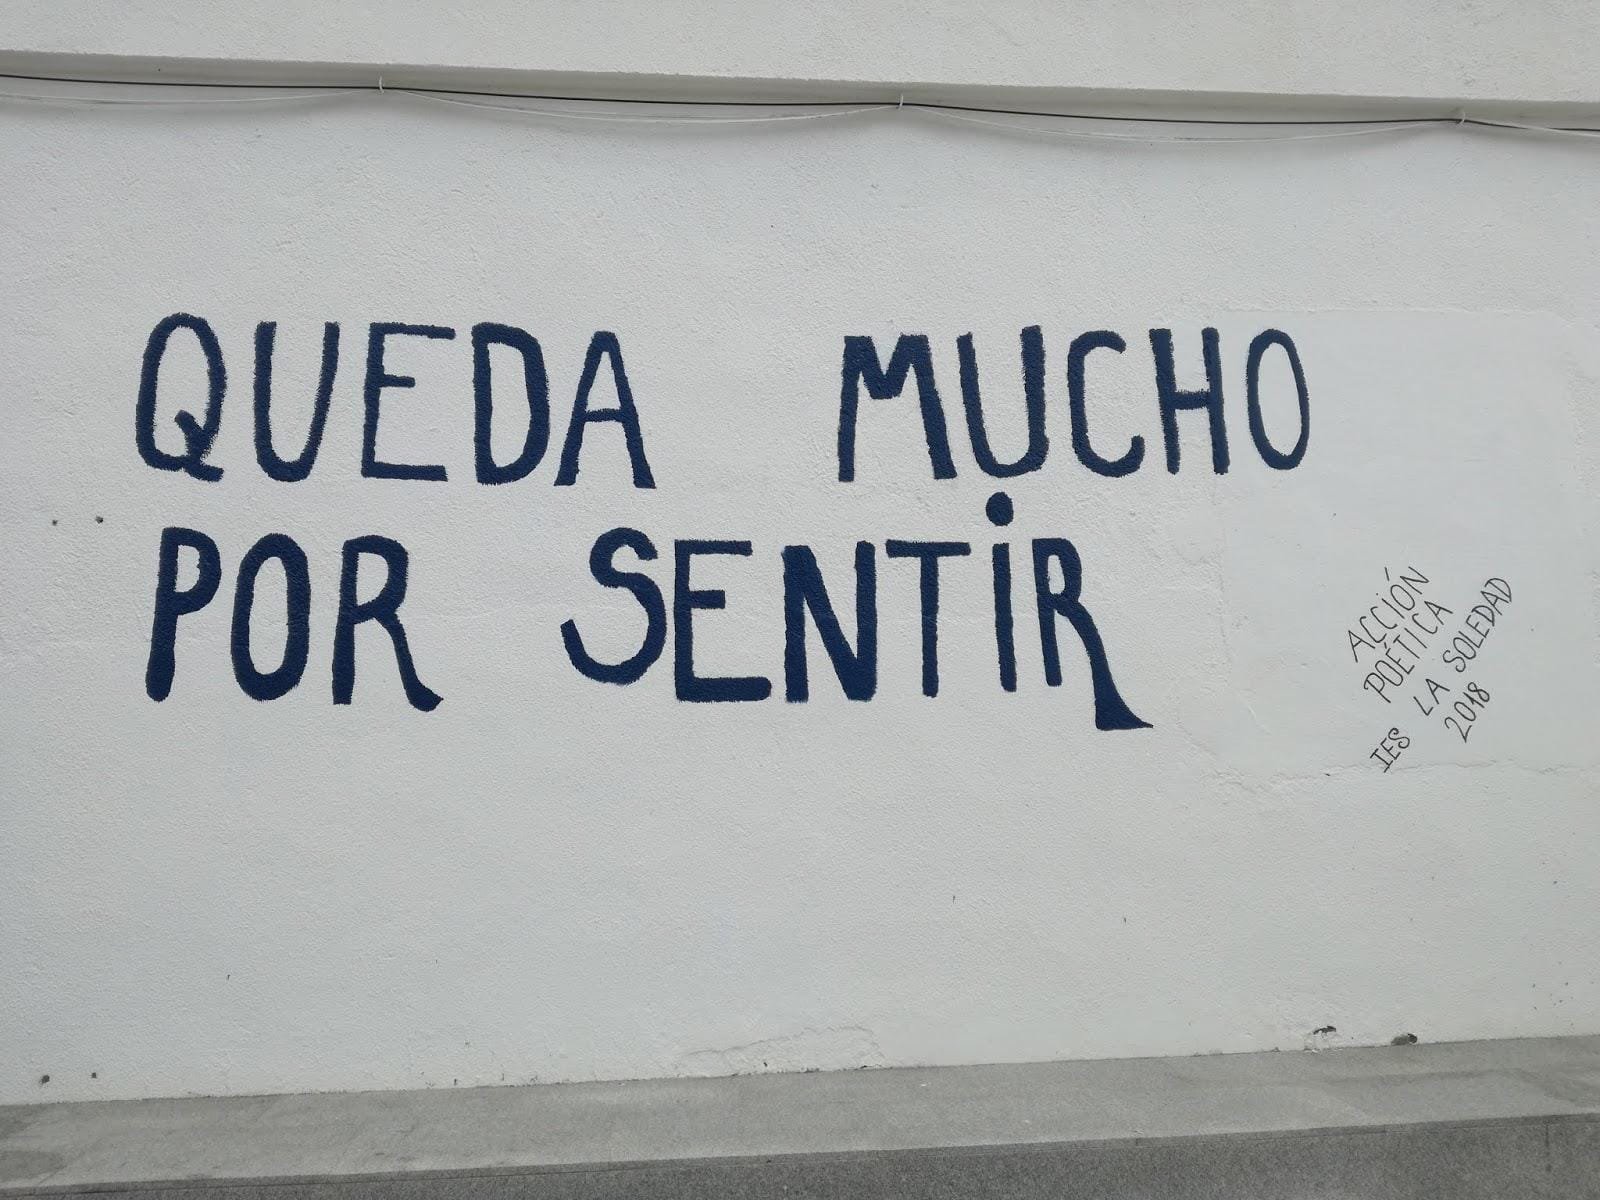 QUEDA MUCHO
POR SENTIR
ACCIÓN
POÉTICA
IES LA SOLEDAD
2018